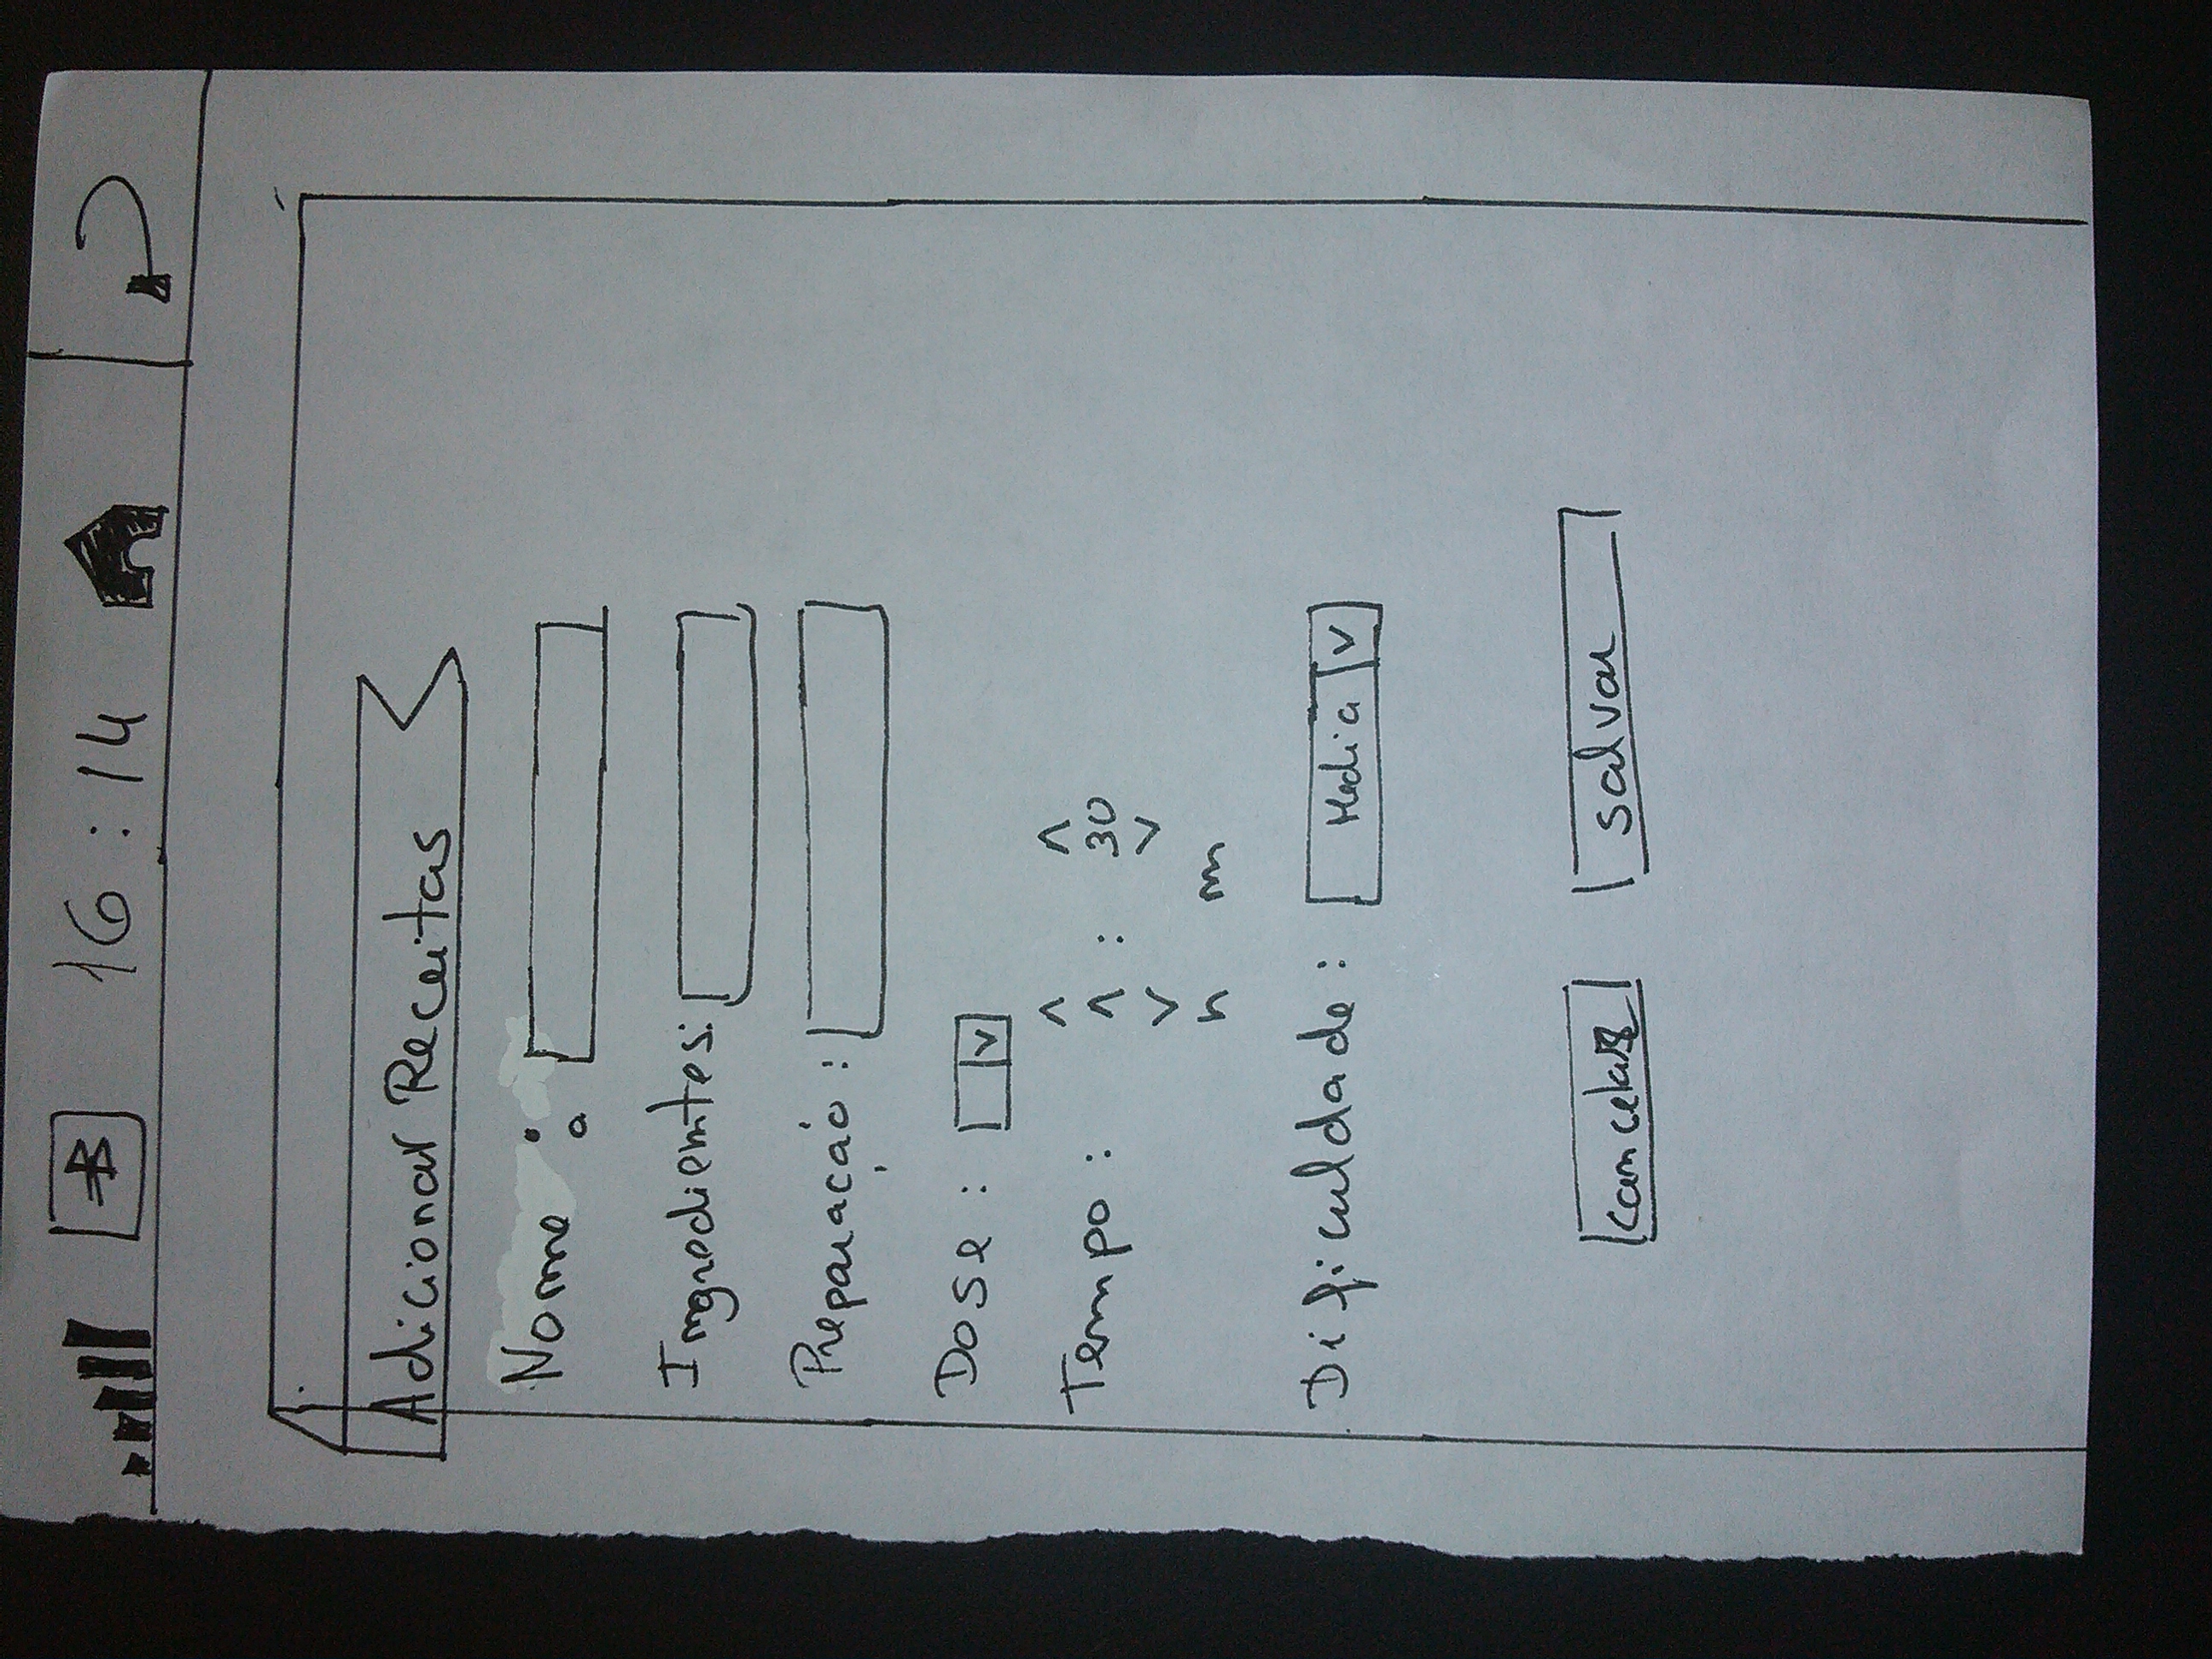 16:14
Adicionar Receitas
Nome:
Ingredientes:
Preparação:
Dose: v
Tempo: 1 : 30
h m
Dificuldade: Media v
cancelar salvar